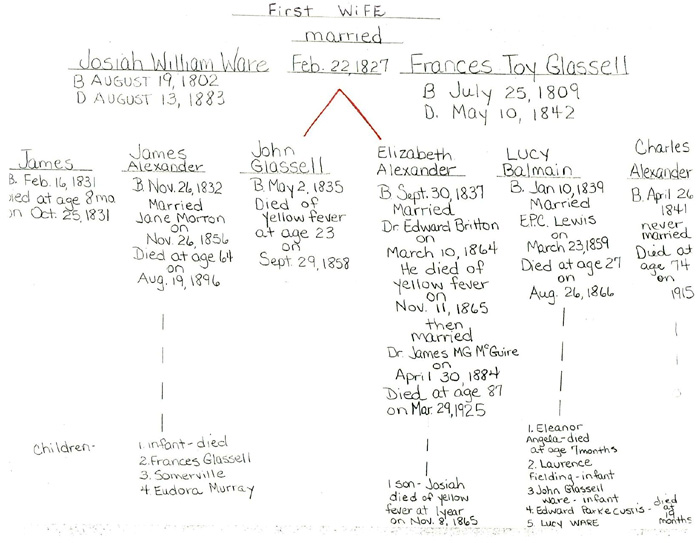 First Wife
married
Josiah William Ware
Feb. 22, 1827
Frances Toy Glassell
B August 19, 1802
D August 13, 1883
B July 25, 1809
D. May 10, 1842
James
B. Feb. 16, 1831
ied at age 8 mo
on Oct. 25, 1831
James
Alexander
B Nov. 26, 1832
Married
Jane Morton
on
Nov. 26, 1856
Died at age 64
on
Aug. 19, 1896
John
Glassell
B May 2, 1835
Died of
yellow fever
at age 23
on
Sept. 29, 1858
Elizabeth
Alexander
B Sept. 30, 1837
Married
Dr Edward Britton
on
March 10, 1864
He died of
yellow fever
on
Nov. 11, 1865
then
married
Dr. James MG McGuire
on
April 30, 1884
Died at age 87
on Mar. 29, 1925
Lucy
Balmain
B. Jan 10, 1839
Married
E.P.C. Lewis
on
March 23, 1859
Died at age 27
on
Aug. 26, 1866
Charles
Alexander
B. April 26
1841
never
married
Died at
age 74
on
1915
Children-
1. infant - died
2. Frances Glassell
3. Somerville
4. Eudora Murray
1 son - Josiah
died of yellow
fever at 1 year
on Nov. 8, 1865
1. Eleanor
Angela - died
at age 7 months
2. Laurence
Fielding - infant
3 John Glassell
Ware - infant
4. Edward Parke Custis - died at 19 months
5. Lucy Ware